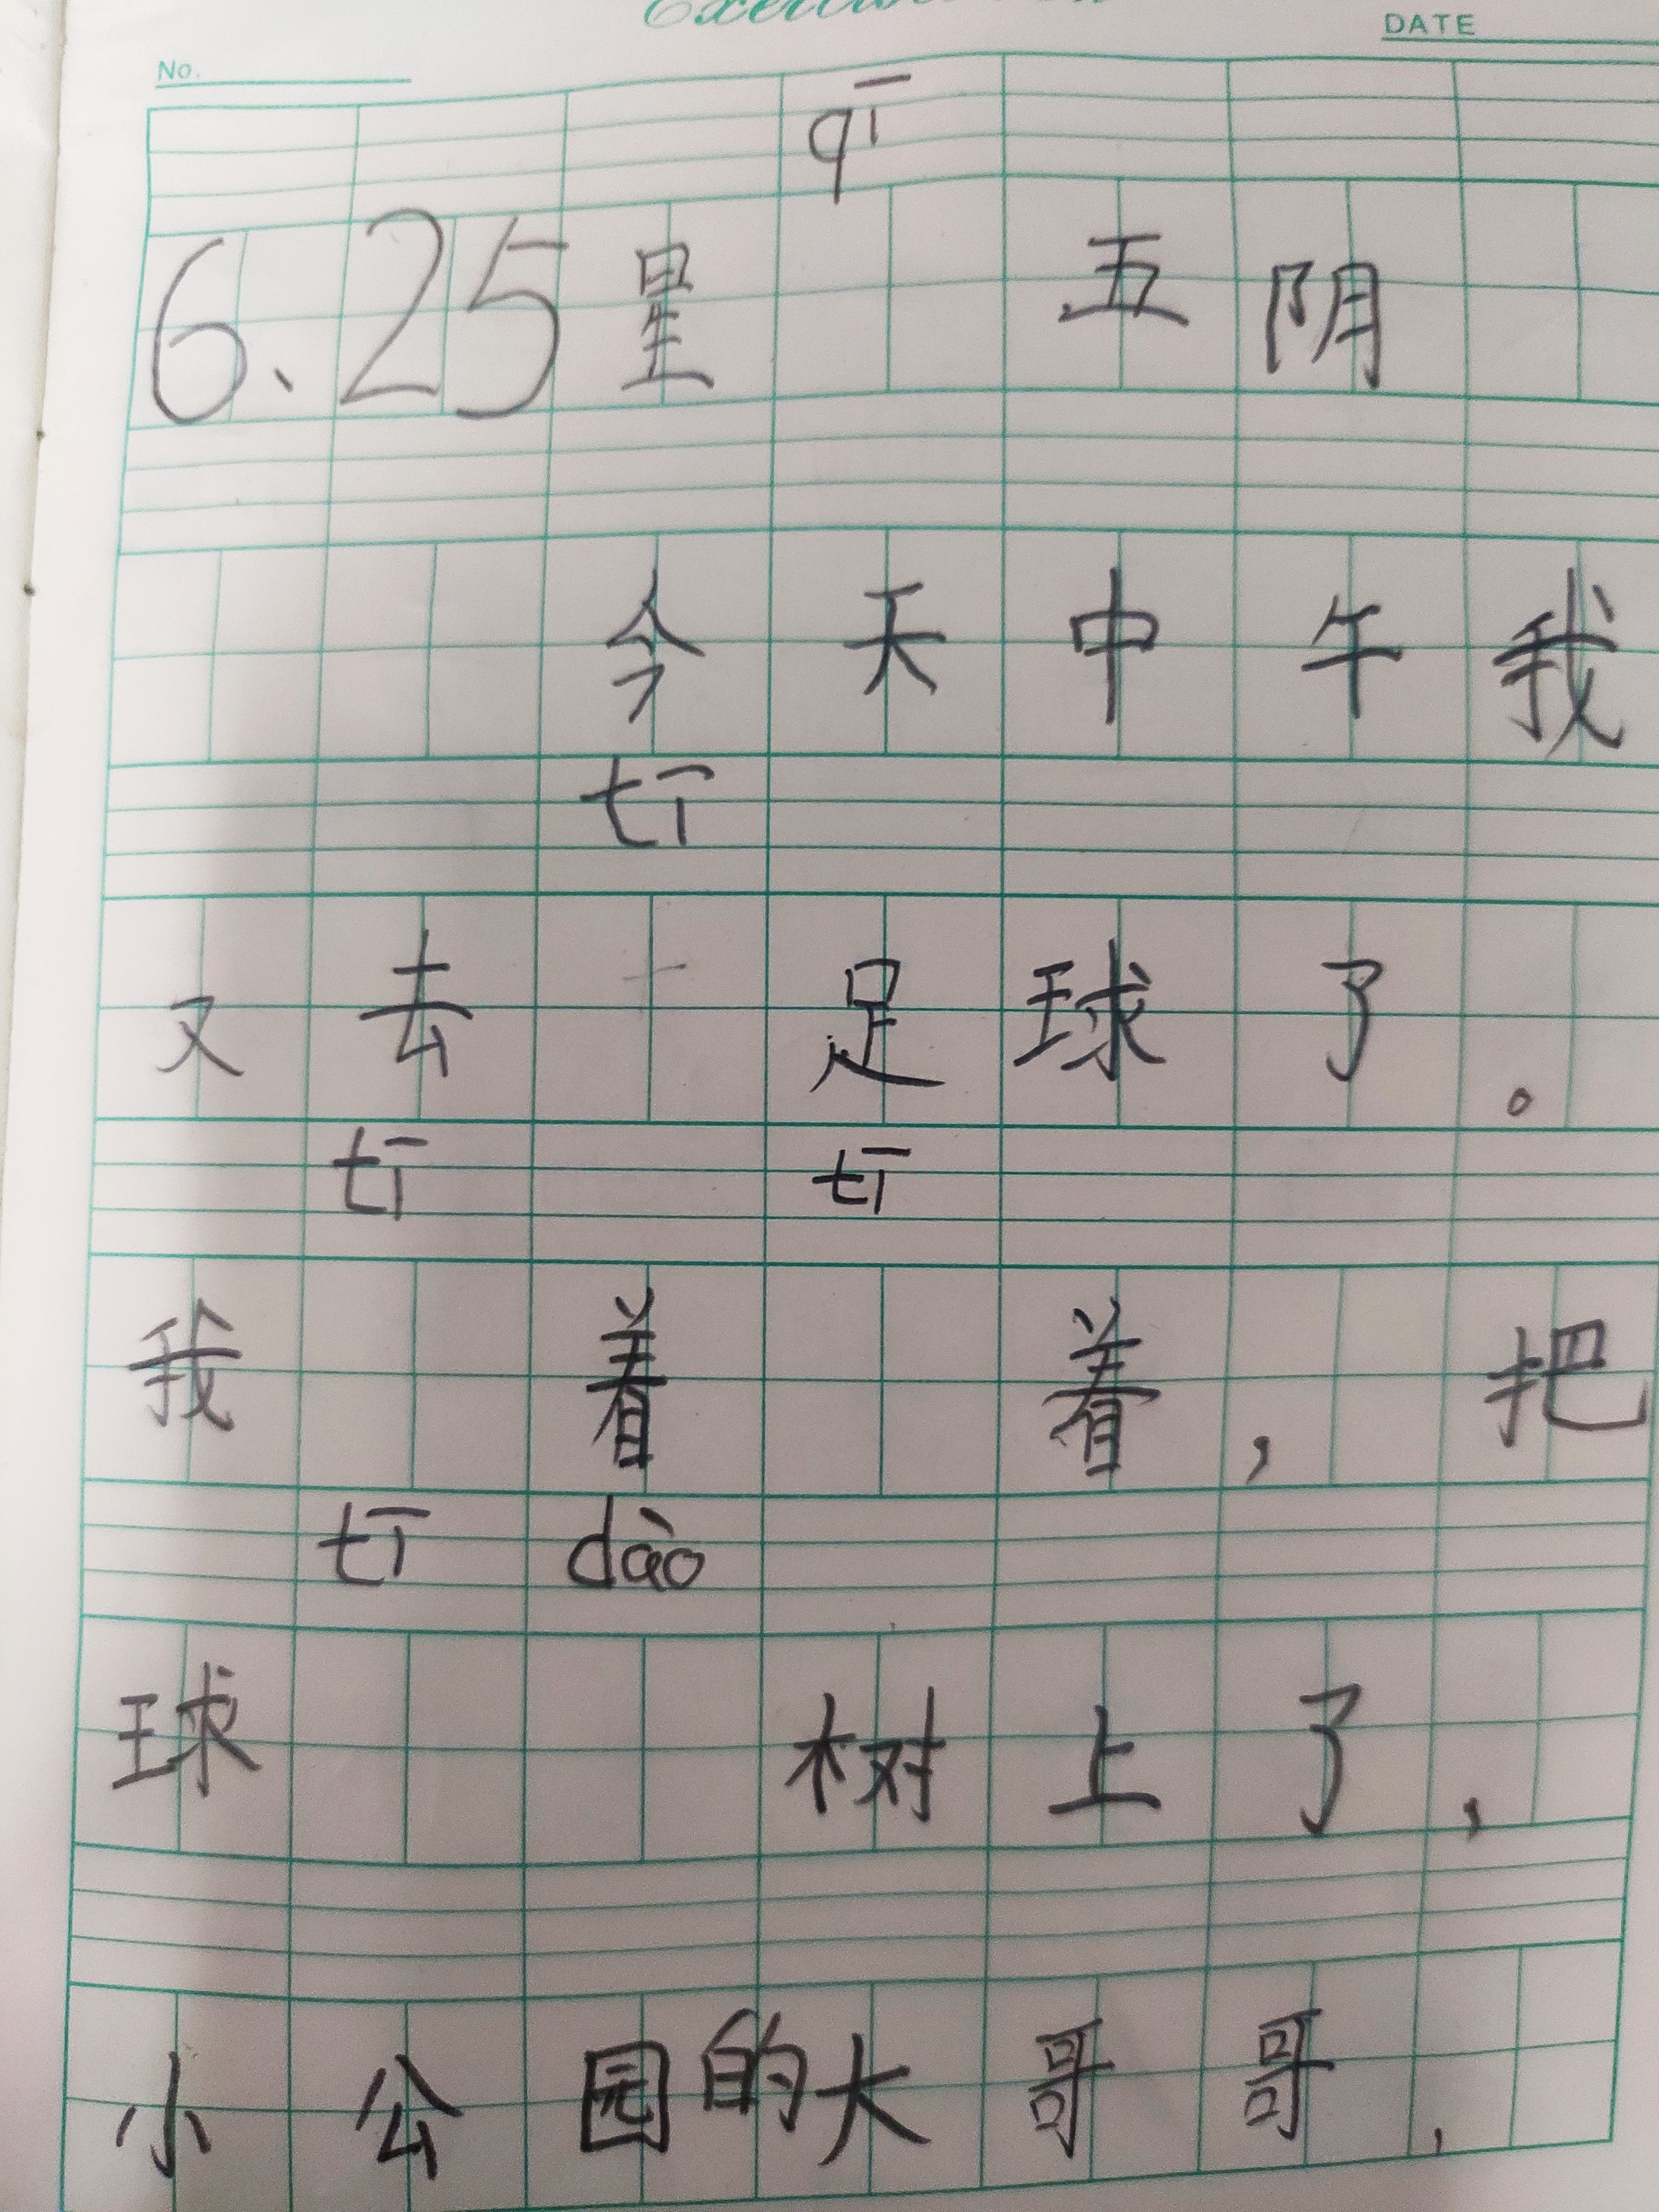 No. DATE
qī
6、25星 五阴
今天中午我
tī
又去 足球了。
tī tī
我 着 着，把
tī dào
球 树上了，
小公园的大哥哥，